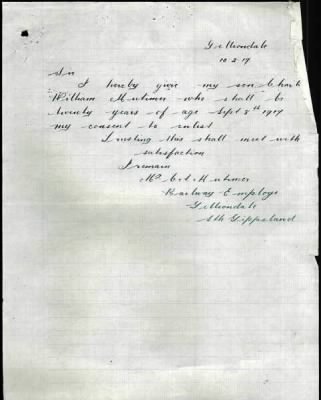 Gelliondale
10.2.17
Sir
I hereby give my son Charl
William Mutimer who shall be
twenty years of age Sept 8th 1917
my consent to enlist
Trusting this shall meet with
satisfaction
I remain
Mutimer
Railway Employe
Gelliondale
Sth Gippsland